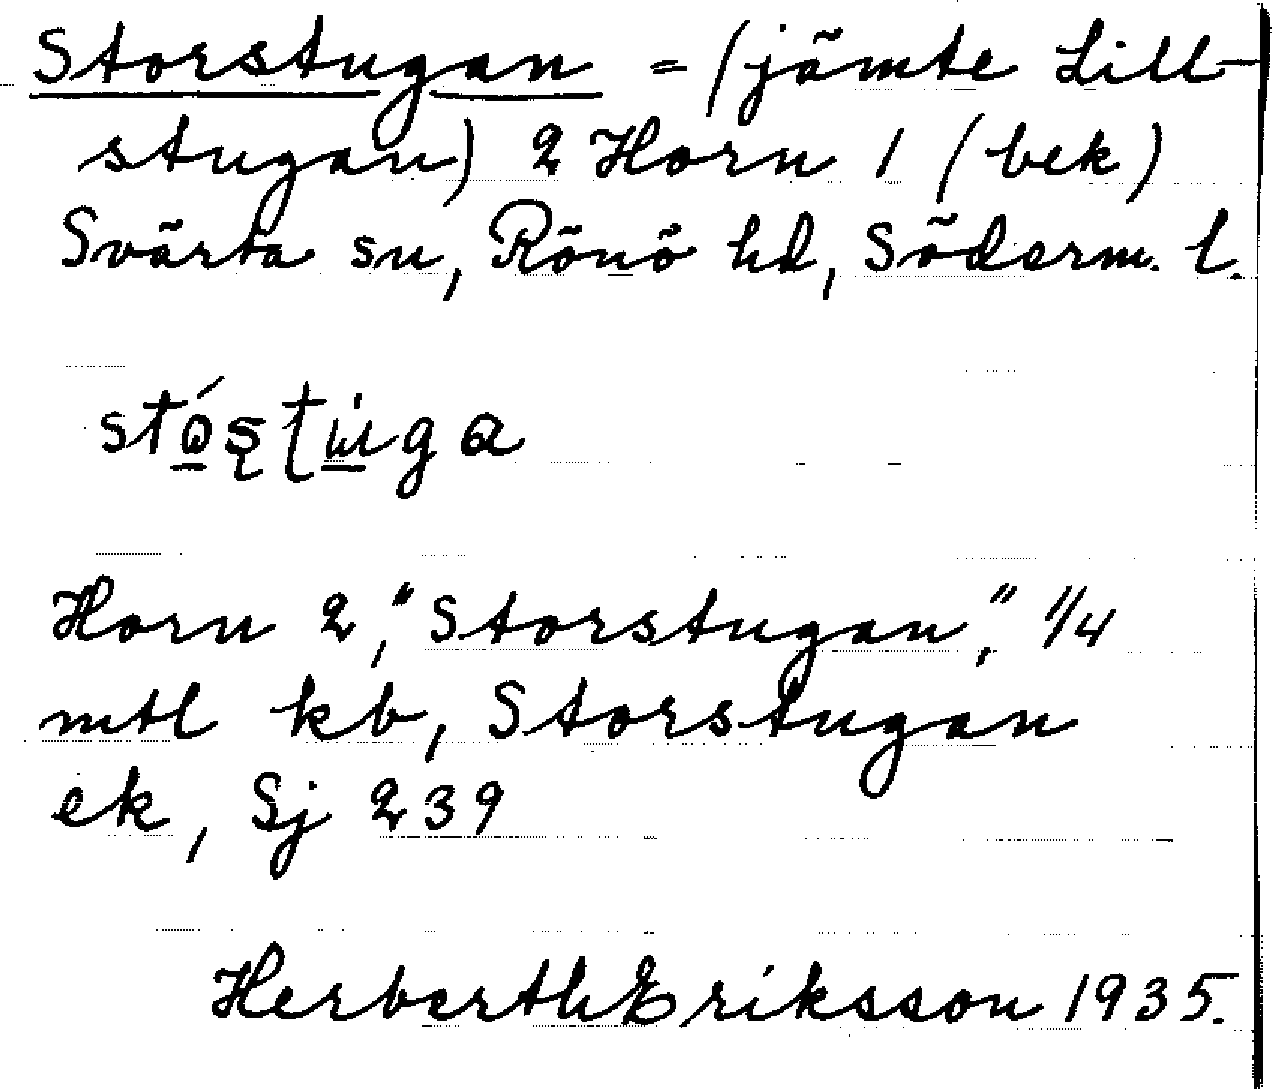 Storstugan = (jämte Lill-
stugan) 2 Horn 1 (bek)
Svärta sn, Rönö hd, Söderm. l.
stó̱ʂʈu̱ga
Horn 2, "Storstugan," 1/4
mtl kb, Storstugan
ek, Sj 239
Herberth Eriksson 1935.